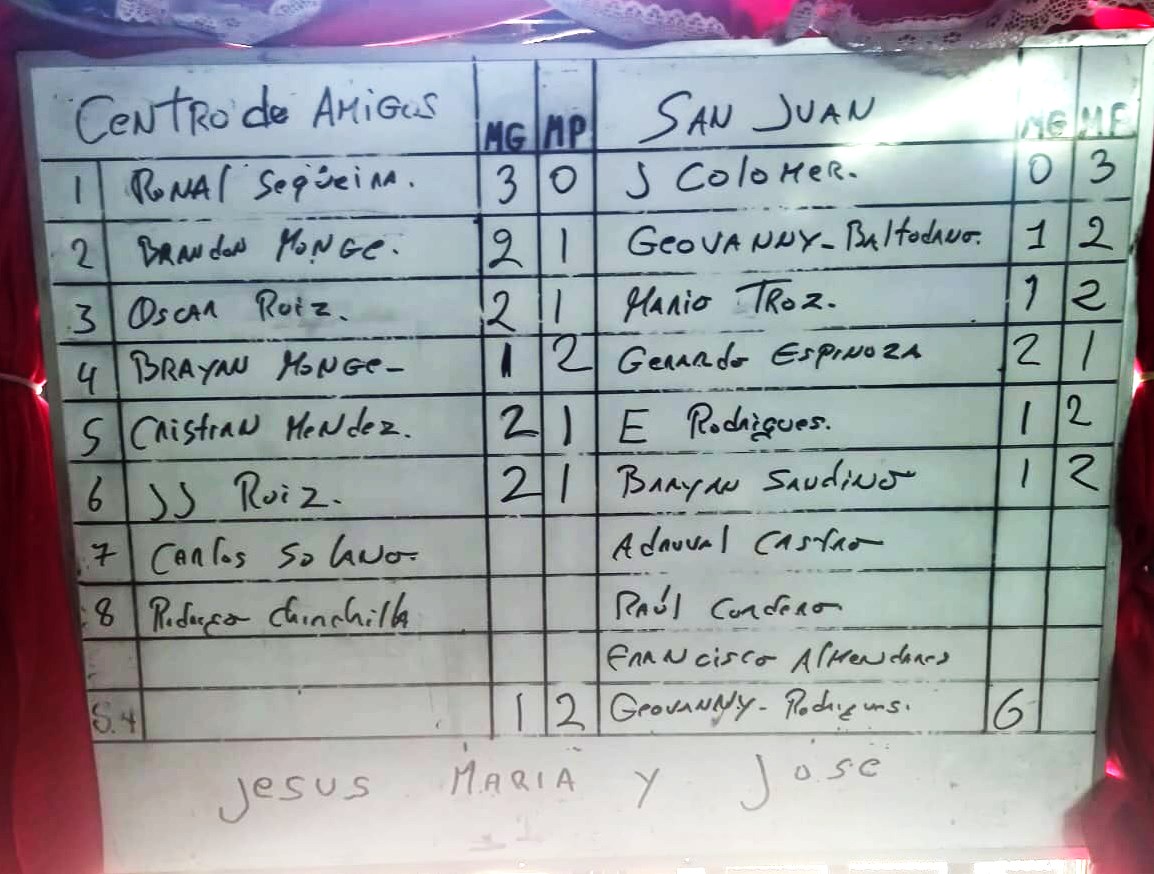 CENTRO de AMIGOS MG MP SAN JUAN MG MP
1 RONAL SEQÜEIRA. 3 0 J COLOMER. 0 3
2 BRANDON MONGE. 2 1 GEOVANNY-BALTODANO. 1 2
3 OSCAR RUIZ. 2 1 MARIO TROZ. 1 2
4 BRAYAN MONGE- 1 2 GERARDO ESPINOZA 2 1
5 CRISTIAN MENDEZ. 2 1 E RODRIGUES. 1 2
6 JJ RUIZ. 2 1 BRAYAN SANDINO 1 2
7 CARLOS SOLANO. CASTRO
8 Chinchilla RAÚL CORDERO
FRANCISCO
S.4 1 2 GEOVANNY- 6
JESUS MARIA Y JOSE